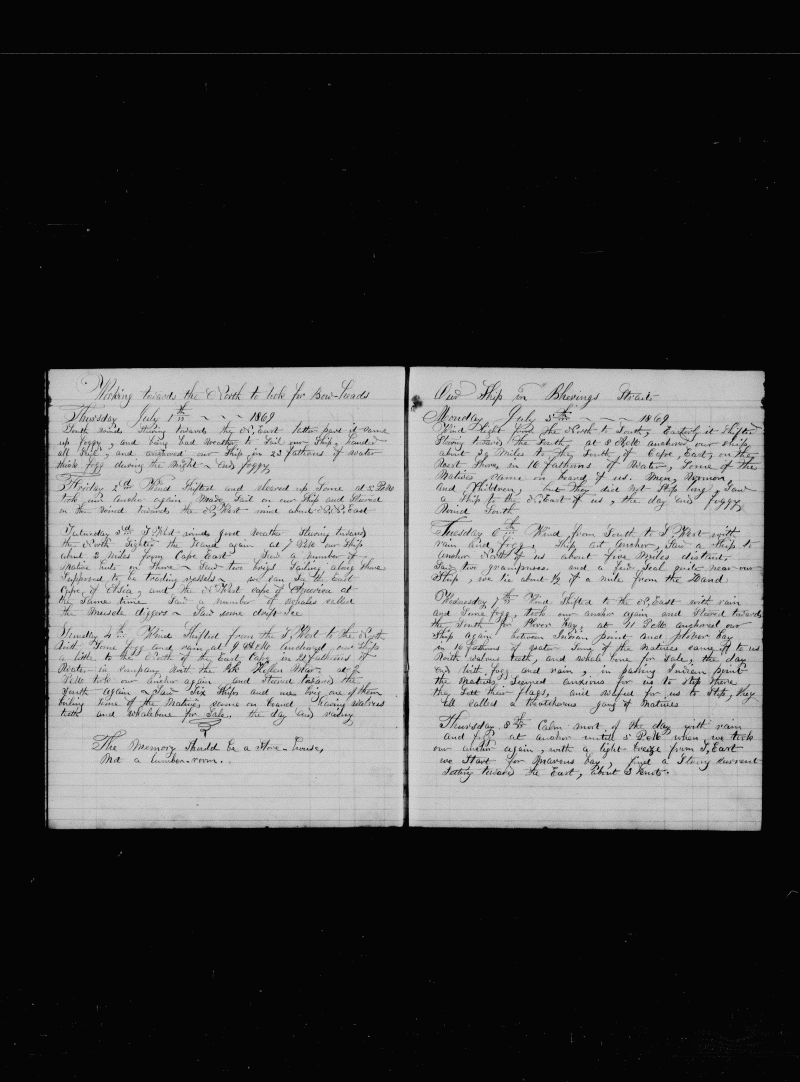 Working towards the North to look for Bow-heads
Thursday July 1th 1869
South winds Stering towards the N, East latter part it came
up foggy, and being bad weather to Sail our Ship, handed
all Sail, and anchored our Ship in 23 fathoms of water
thick fogg during the Night ~ Ends foggy
Friday 2th Wind Shifted and cleared up Some at 2 P.M
took our Anchor again Made Sail on our Ship and Stered
on the Wind towards the N, West wind about N.N.East
Saturday 3th S, West winds good weather Stering towards
the North Sighted the Land again at 7 P.M our Ship
about 2 Miles from Cape East Saw a number of
Native huts on Shore ~ Saw two brigs Sailing along Shore
Supposed to be trading vessels ~ we can See the East
Cape, of Asia, and the N. West cape of America at
the Same time Saw a number of whales called
the Muscle diggers ~ Saw some drift Ice
Sunday 4th Wind Shifted from the S, West to the North
With Some fogg and rain at 9 A.M anchored our Ship
a little to the North of the East Cape in 21 fathoms of
Water in company with the Bk Hellen Mar at 2
P.M took our Anchor again and Steered toward the
South Again ~ Saw Six Ships and one brig one of them
boiling Some of the Natives came on board having walrus
teeth and whalebone for Sale, the day Ends rainy
The Memory Should be a Store-house,
Not a lumber-room.
Our Ship in Bherings Straits
Monday July 5th 1869
Wind light from the North to South, Easterly it Shifted
Stering towards the South, at 8 P.M anchored our Ship
about 20 Miles to the South, of Cape, East, on the
West Shore, in 16 fathoms of Water, Some of the
Natives came on board of us. Men, Women
and Children, but they did not Stop long, Saw
a Ship to the N, East of us, the day ends foggy
Wind South
Tuesday 6th Wind from South to S, West with
rain and fogg, Ship at anchor, Saw a Ship to
anchor of us about five Miles distant.
Saw two grampuses. and a few Seal quite near our
Ship, we lie about 1/2 of a mile from the Land
Wednesday 7th Wind Shifted to the N, East with rain
and Some fogg, took our anchor again and Steered towards
the South for Plover bay, at 11 P.M anchored our
Ship again between Indian point and plover bay
in 16 fathoms of water Some of the Natives came off to us
With walrus teeth, and whale bone for Sale, the day
ends with fogg and rain, in passing Indian point
the Natives Seemed anxious for us to Stop there
they Set their flags, and wefted for us to Stop, they
are called a treacherous gang of Natives
Thursday 8th Calm most of the day with rain
and fogg at anchor untill 5 P.M when we took
our anchor again, with a light breeze from S, East
we Start for bay, find a Strong current
Setting toward the East, about 3 knots.